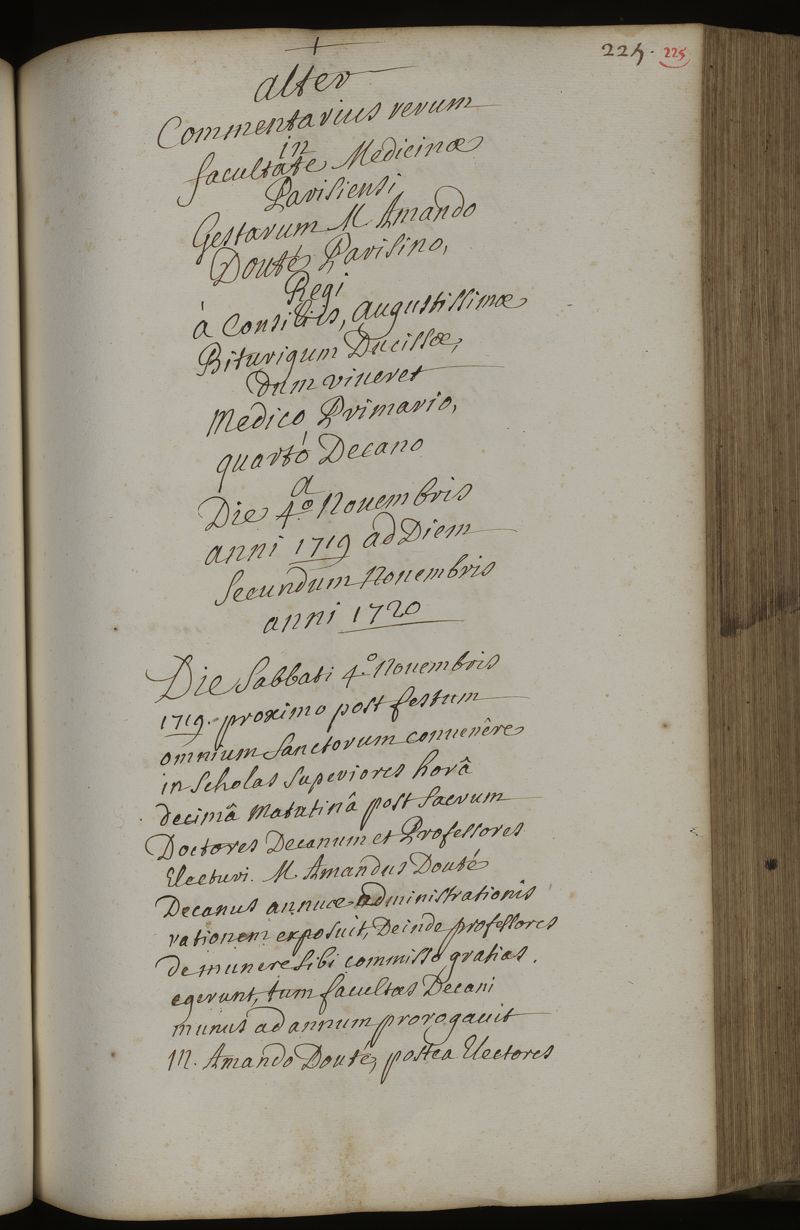 225. 225
†
alter
Commentarius rerum
in
facultate Medicinæ
Parisiensi
Gestarum M Amando
Douté Parisino,
Regi
à Consiliis, augustissimæ
Biturigum Ducissæ,
dum viueret
Medico Primario,
quartò Decano
a
Die 4.º Nouembris
anni 1719 ad Diem
secundum Nouembris
anni 1720
Die Sabbati 4.º Nouembris
1719. proximo post festum
omnium Sanctorum conuenêre
in Scholas Superiores horâ
decimâ matutinâ post sacrum
Doctores Decanum et Professores
Electuri. M Amandus Douté
Decanus annuæ administrationis
rationem exposuit, Deinde professores
de munere sibi commisso gratias
egerunt, tum facultas Decani
munus ad annum prorogauit
M. Amando Douté, postea Electores